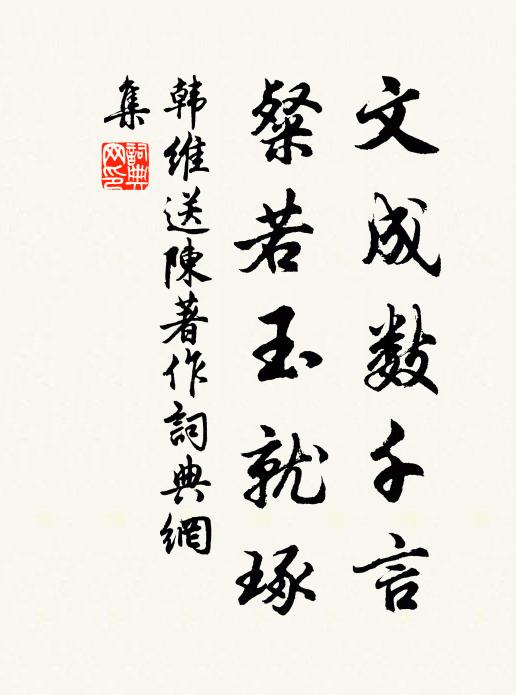 文成数千言
粲若玉就琢
韩維送陳著作詞典網
集
詞典
网印